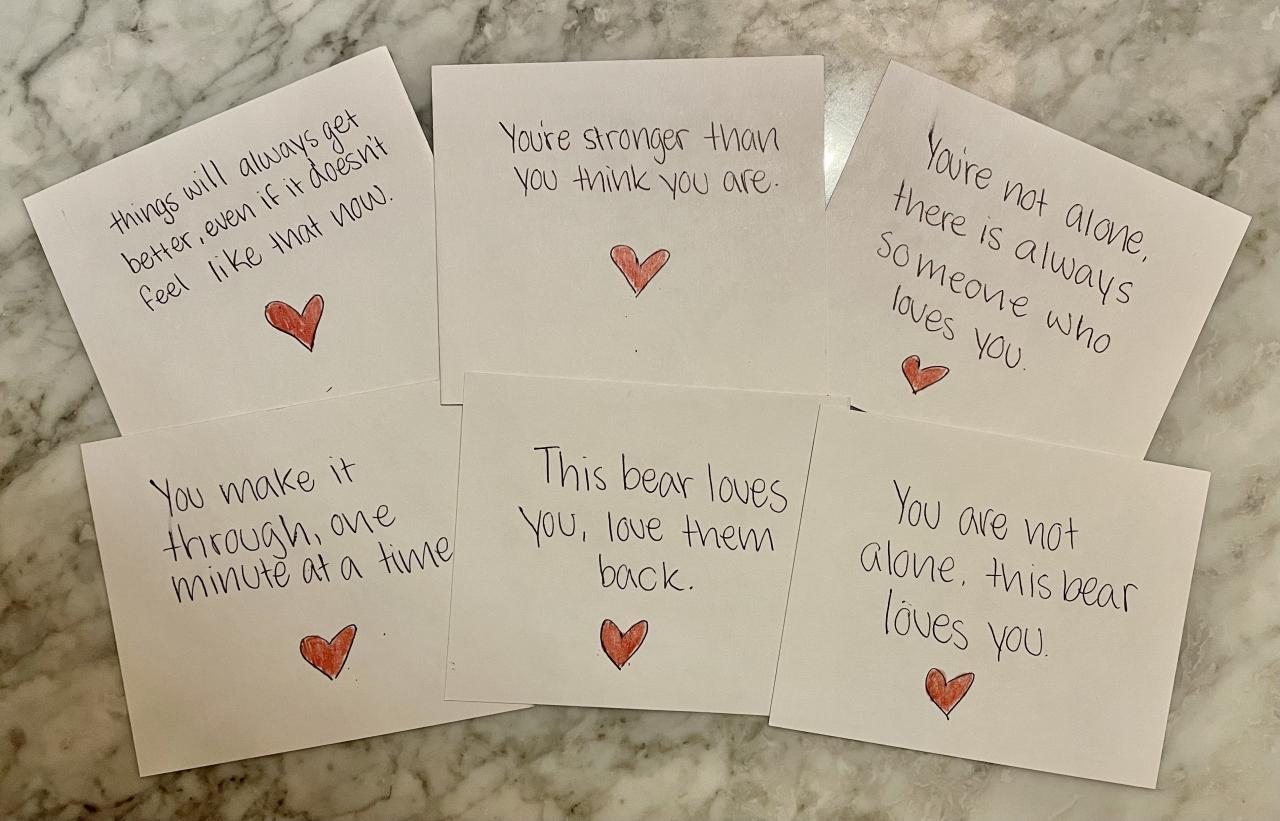 things will always get
better, even if it doesn't
feel like that now.
You're stronger than
you think you are.
You're not alone,
there is always
someone who
loves you.
You make it
through, one
minute at a time
This bear loves
you, love them
back.
You are not
alone, this bear
loves you.